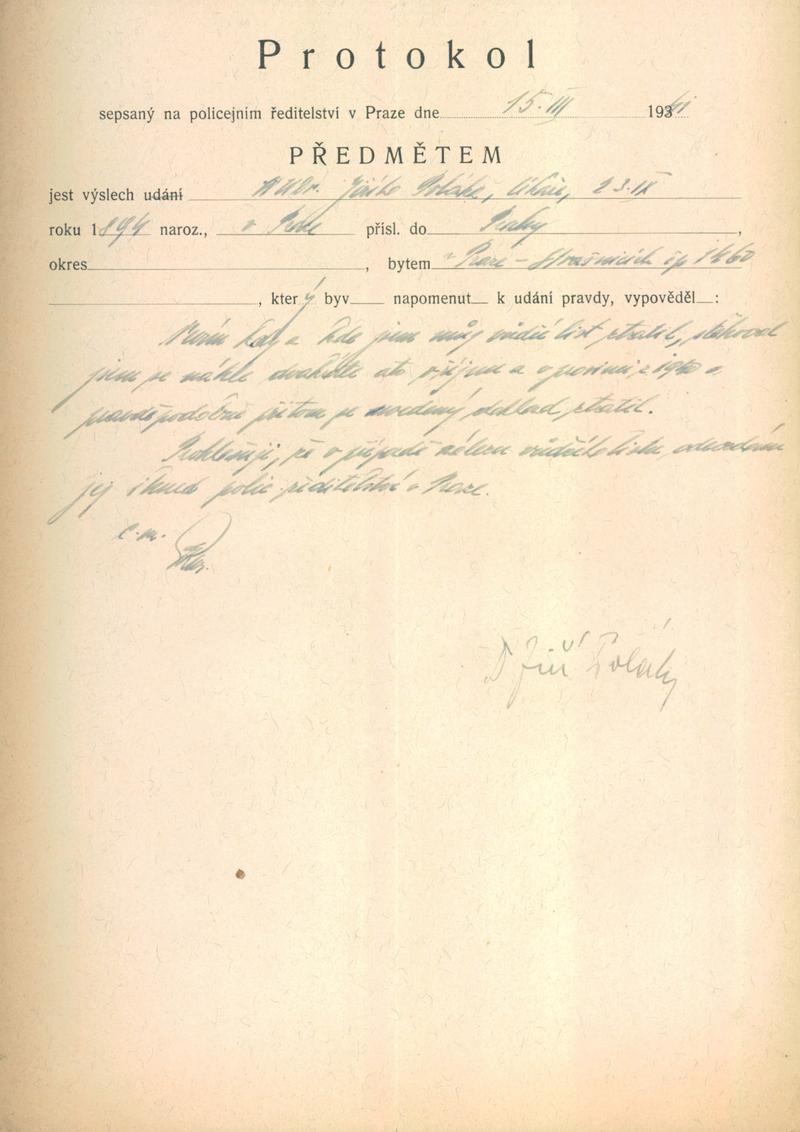 Protokol
sepsaný na policejním ředitelství v Praze dne 15. III 1941
PŘEDMĚTEM
jest výslech udání MUDr. Jiřího Poláka, lékaře, 23. IX
roku 1894 naroz., v Praze přísl. do Prahy,
okres , bytem v Praze - Strašnicích čp 1460
, který byv napomenut k udání pravdy, vypověděl :
Nevím kdy a kde jsem můj řidičí list ztratil, stěhoval
jsem se náhle dvakráte a to v říjnu a v prosinci 1940 a
pravděpodobně přitom se uvedený doklad ztratil.
Prohlašuji, že v případě nálezu řidičího listu, odevzdám
jej ihned polic. ředitelství v Praze.
Dr Jiří Polák